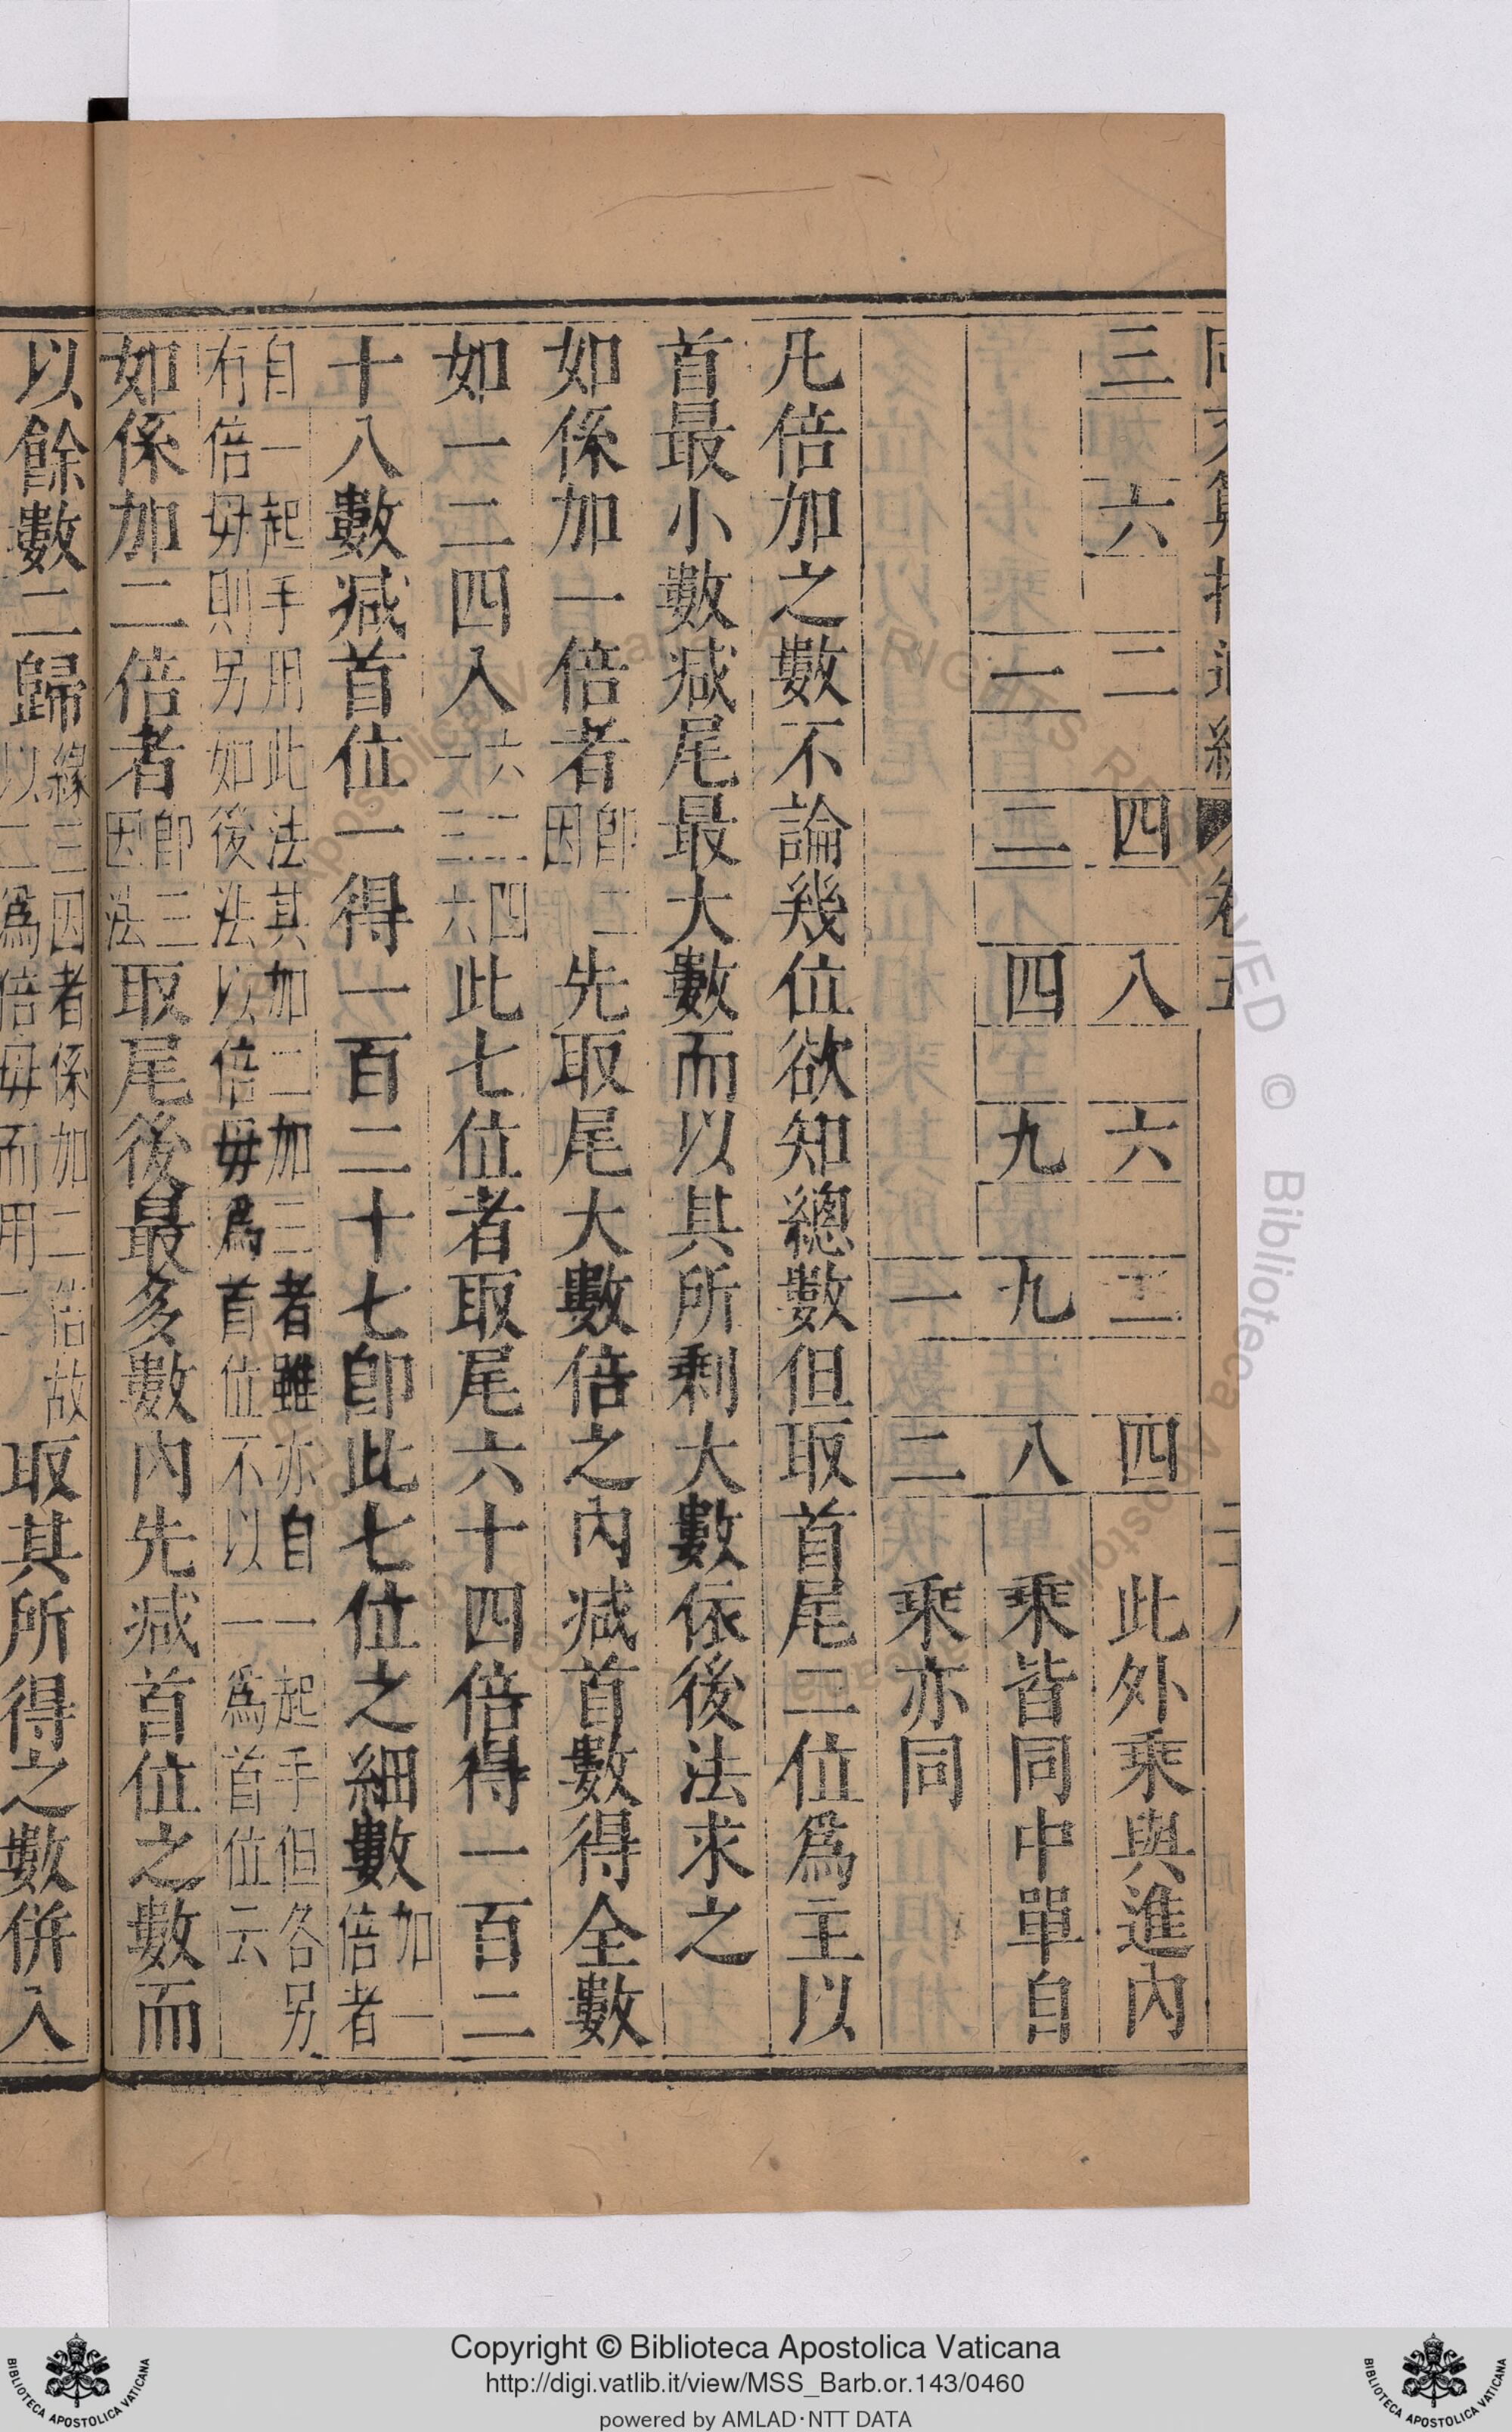 三　六　二　四　八　六　二　四　此外乘與進內
二　三　四　九　九　八　乘皆同中單自
一　二　乘亦同
凡倍加之數不論幾位欲知總數但取首尾二位爲主以
首最小數减尾最大數而以其所剩大數依後法求之
如係加一倍者即二因先取尾大數倍之內减首數得全數
如一二四八一六三二六四此七位者取尾六十四倍得一百二
十八數减首位一得一百二十七即此七位之細數加一倍者
自一起手用此法其加二加三者雖亦自一起手但各另
有倍毋則另如後法以倍毋爲首位不以一爲首位云
如係加二倍者即三因法取尾後最多數內先减首位之數而
以餘數二歸緣三因者係加二倍故以二爲倍毋而用取其所得之數併入
Copyright © Biblioteca Apostolica Vaticana
http://digi.vatlib.it/view/MSS_Barb.or.143/0460
powered by AMLAD·NTT DATA
BIBLIOTECA APOSTOLICA VATICANA
BIBLIOTECA APOSTOLICA VATICANA